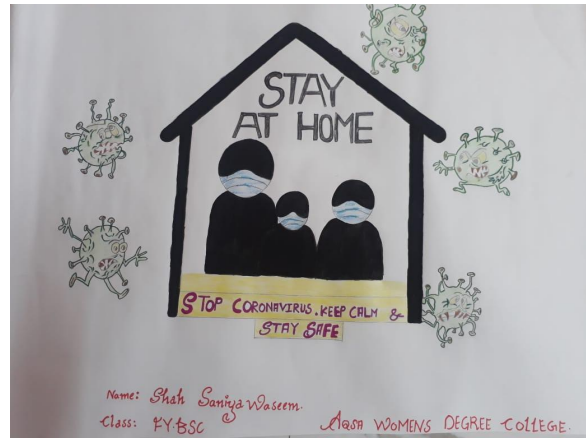 STAY
AT HOME
STOP CORONAVIRUS. KEEP CALM &
STAY SAFE
Name: Shah Saniya Waseem.
Class: FY.BSC
AQSA WOMENS DEGREE COLLEGE.